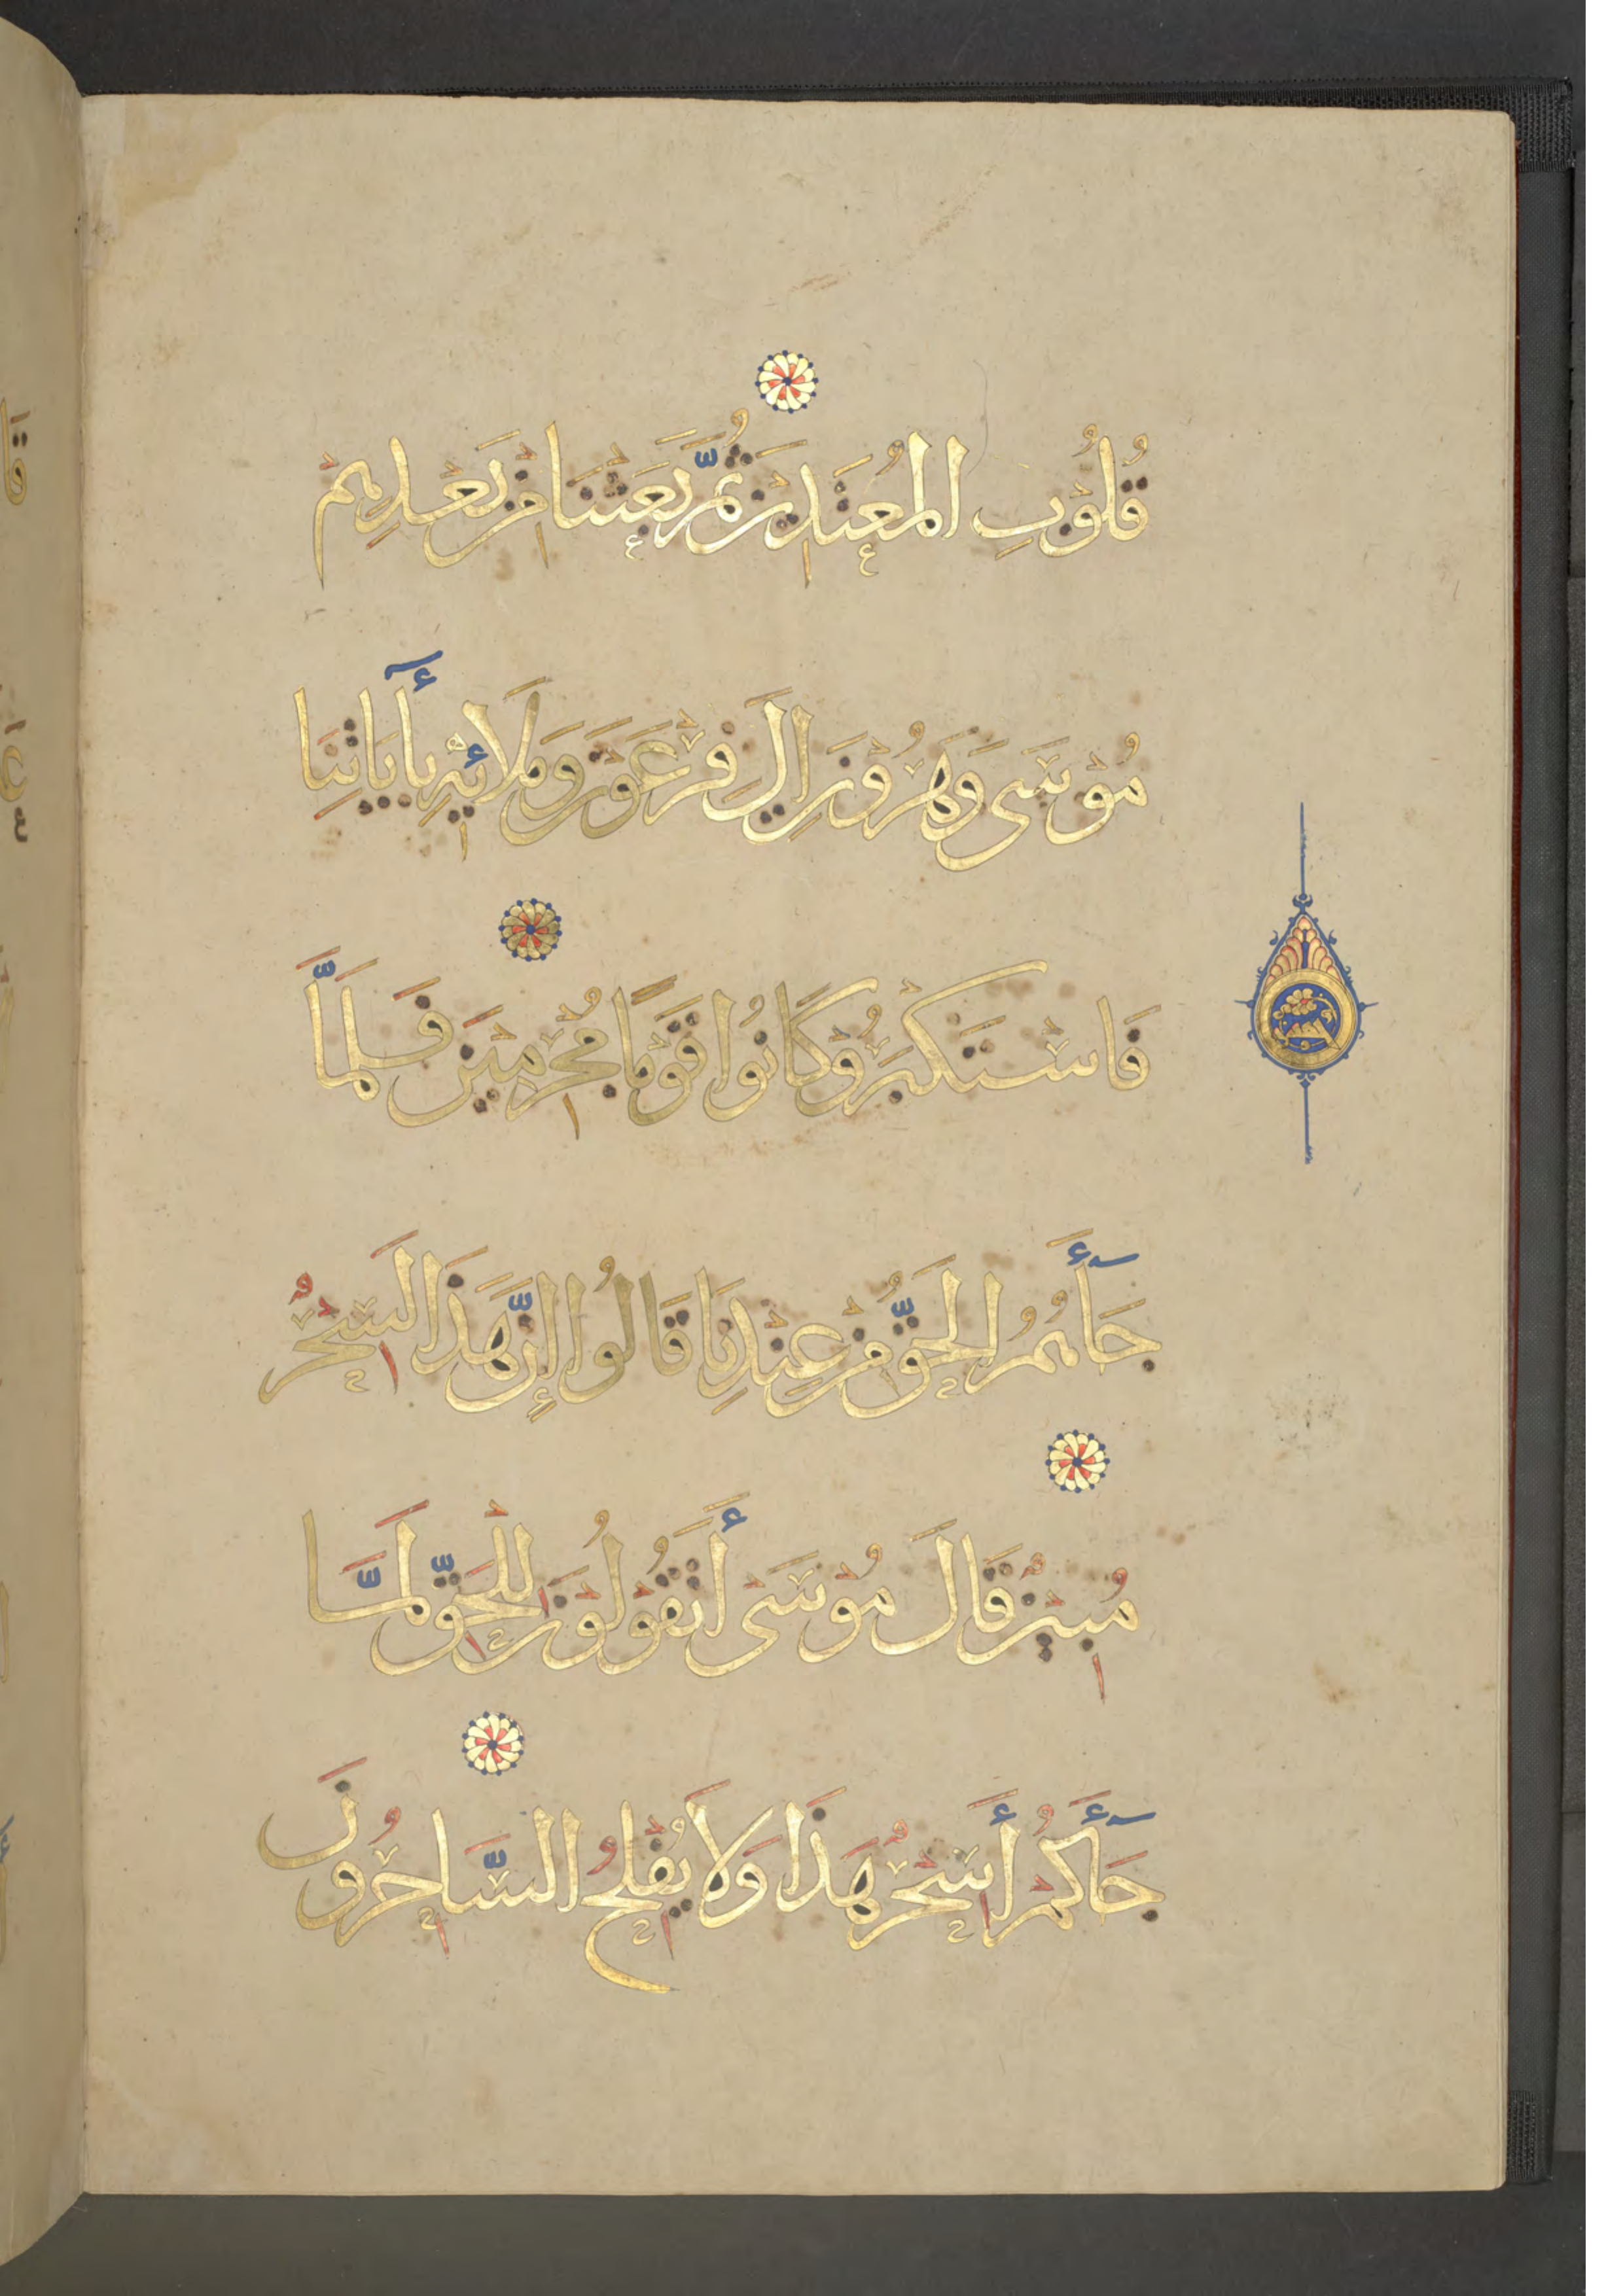 قُلُوْبِ الْمُعْتَدِيْنَ ثُمَّ بَعَثْنَا مِنْ بَعْدِهِمْ
مُوْسَى وَهَرُوْنَ إِلَى فِرْعَوْنَ وَمَلَائِهِ بِأٓيَاتِنَا
فَاسْتَكْبَرُوْا وَكَانُوا قَوْمًا مُجْرِمِيْنَ فَلَمَّا
جَآَٔهُمُ الْحَقُّ مِنْ عِنْدِنَا قَالُوا إِنَّ هَذَا لَسِحْرٌ
مُبِيْنٌ قَالَ مُوْسَى أَتَقُوْلُوْنَ لِلْحَقِّ لَمَّا
جَآَٔكُمْ أَسِحْرٌ هَذَا وَلَا يُفْلِحُ السَّاحِرُوْنَ